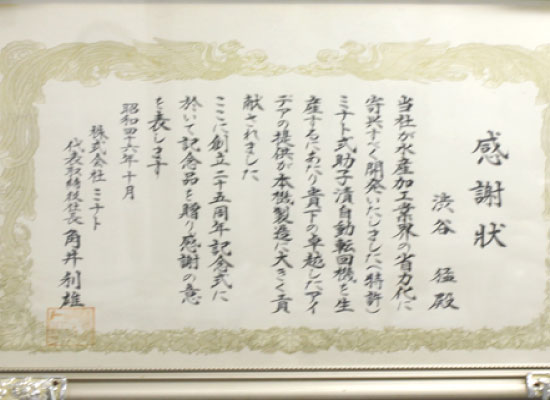 感謝状
渋谷 猛殿
当社が水産加工業界の省力化に
寄与すべく開発いたしました(特許)
ミナト式助子漬自動転回機を生
産するにあたり貴下の卓越したアイ
デアの提供が本機製造に大きく貢
献されました
ここに創立二十五周年記念式に
於いて記念品を贈り感謝の意
を表します
昭和四十六年十月
株式会社 ミナト
代表取締役社長 角井利雄